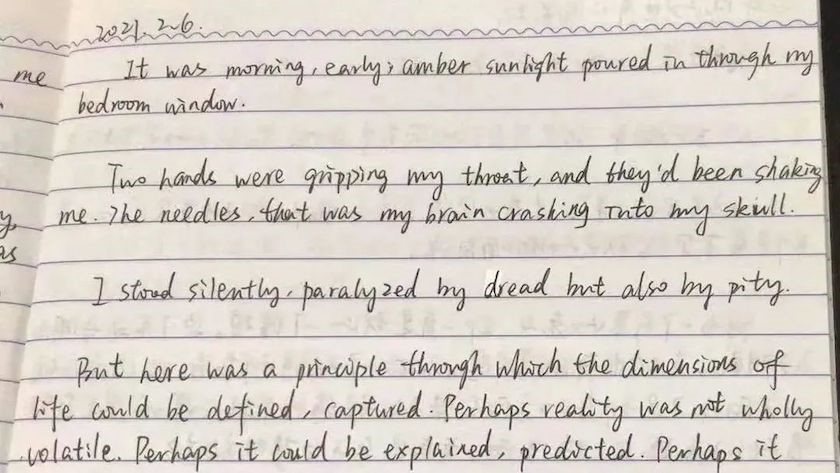 2021.2.6.
me
It was morning, early; amber sunlight poured in through my
bedroom window.
Two hands were gripping my throat, and they'd been shaking
me. The needles, that was my brain crashing into my skull.
as
I stood silently, paralyzed by dread but also by pity.
But here was a principle through which the dimensions of
life could be defined, captured. Perhaps reality was not wholly
volatile. Perhaps it could be explained, predicted. Perhaps it